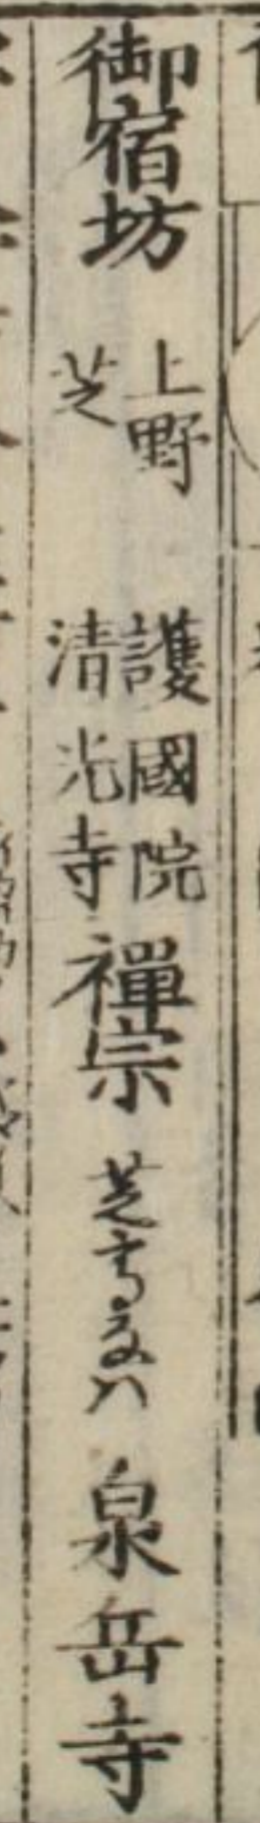 御宿坊
上野　護國院
芝　清光寺
禪宗
芝高なハ
泉岳寺